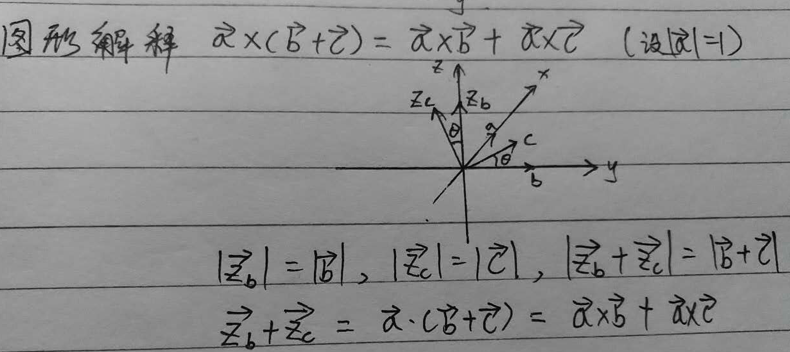 图形解释 $\vec{a}\times(\vec{b}+\vec{c})=\vec{a}\times\vec{b}+\vec{a}\times\vec{c}$ (设$|\vec{a}|=1$)
z
x
Zc
Zb
a
θ
c
θ
b
y
$|\vec{z_b}|=|\vec{b}|$, $|\vec{z_c}|=|\vec{c}|$, $|\vec{z_b}+\vec{z_c}|=|\vec{b}+\vec{c}|$
$\vec{z_b}+\vec{z_c}=\vec{a}\cdot(\vec{b}+\vec{c})=\vec{a}\times\vec{b}+\vec{a}\times\vec{c}$